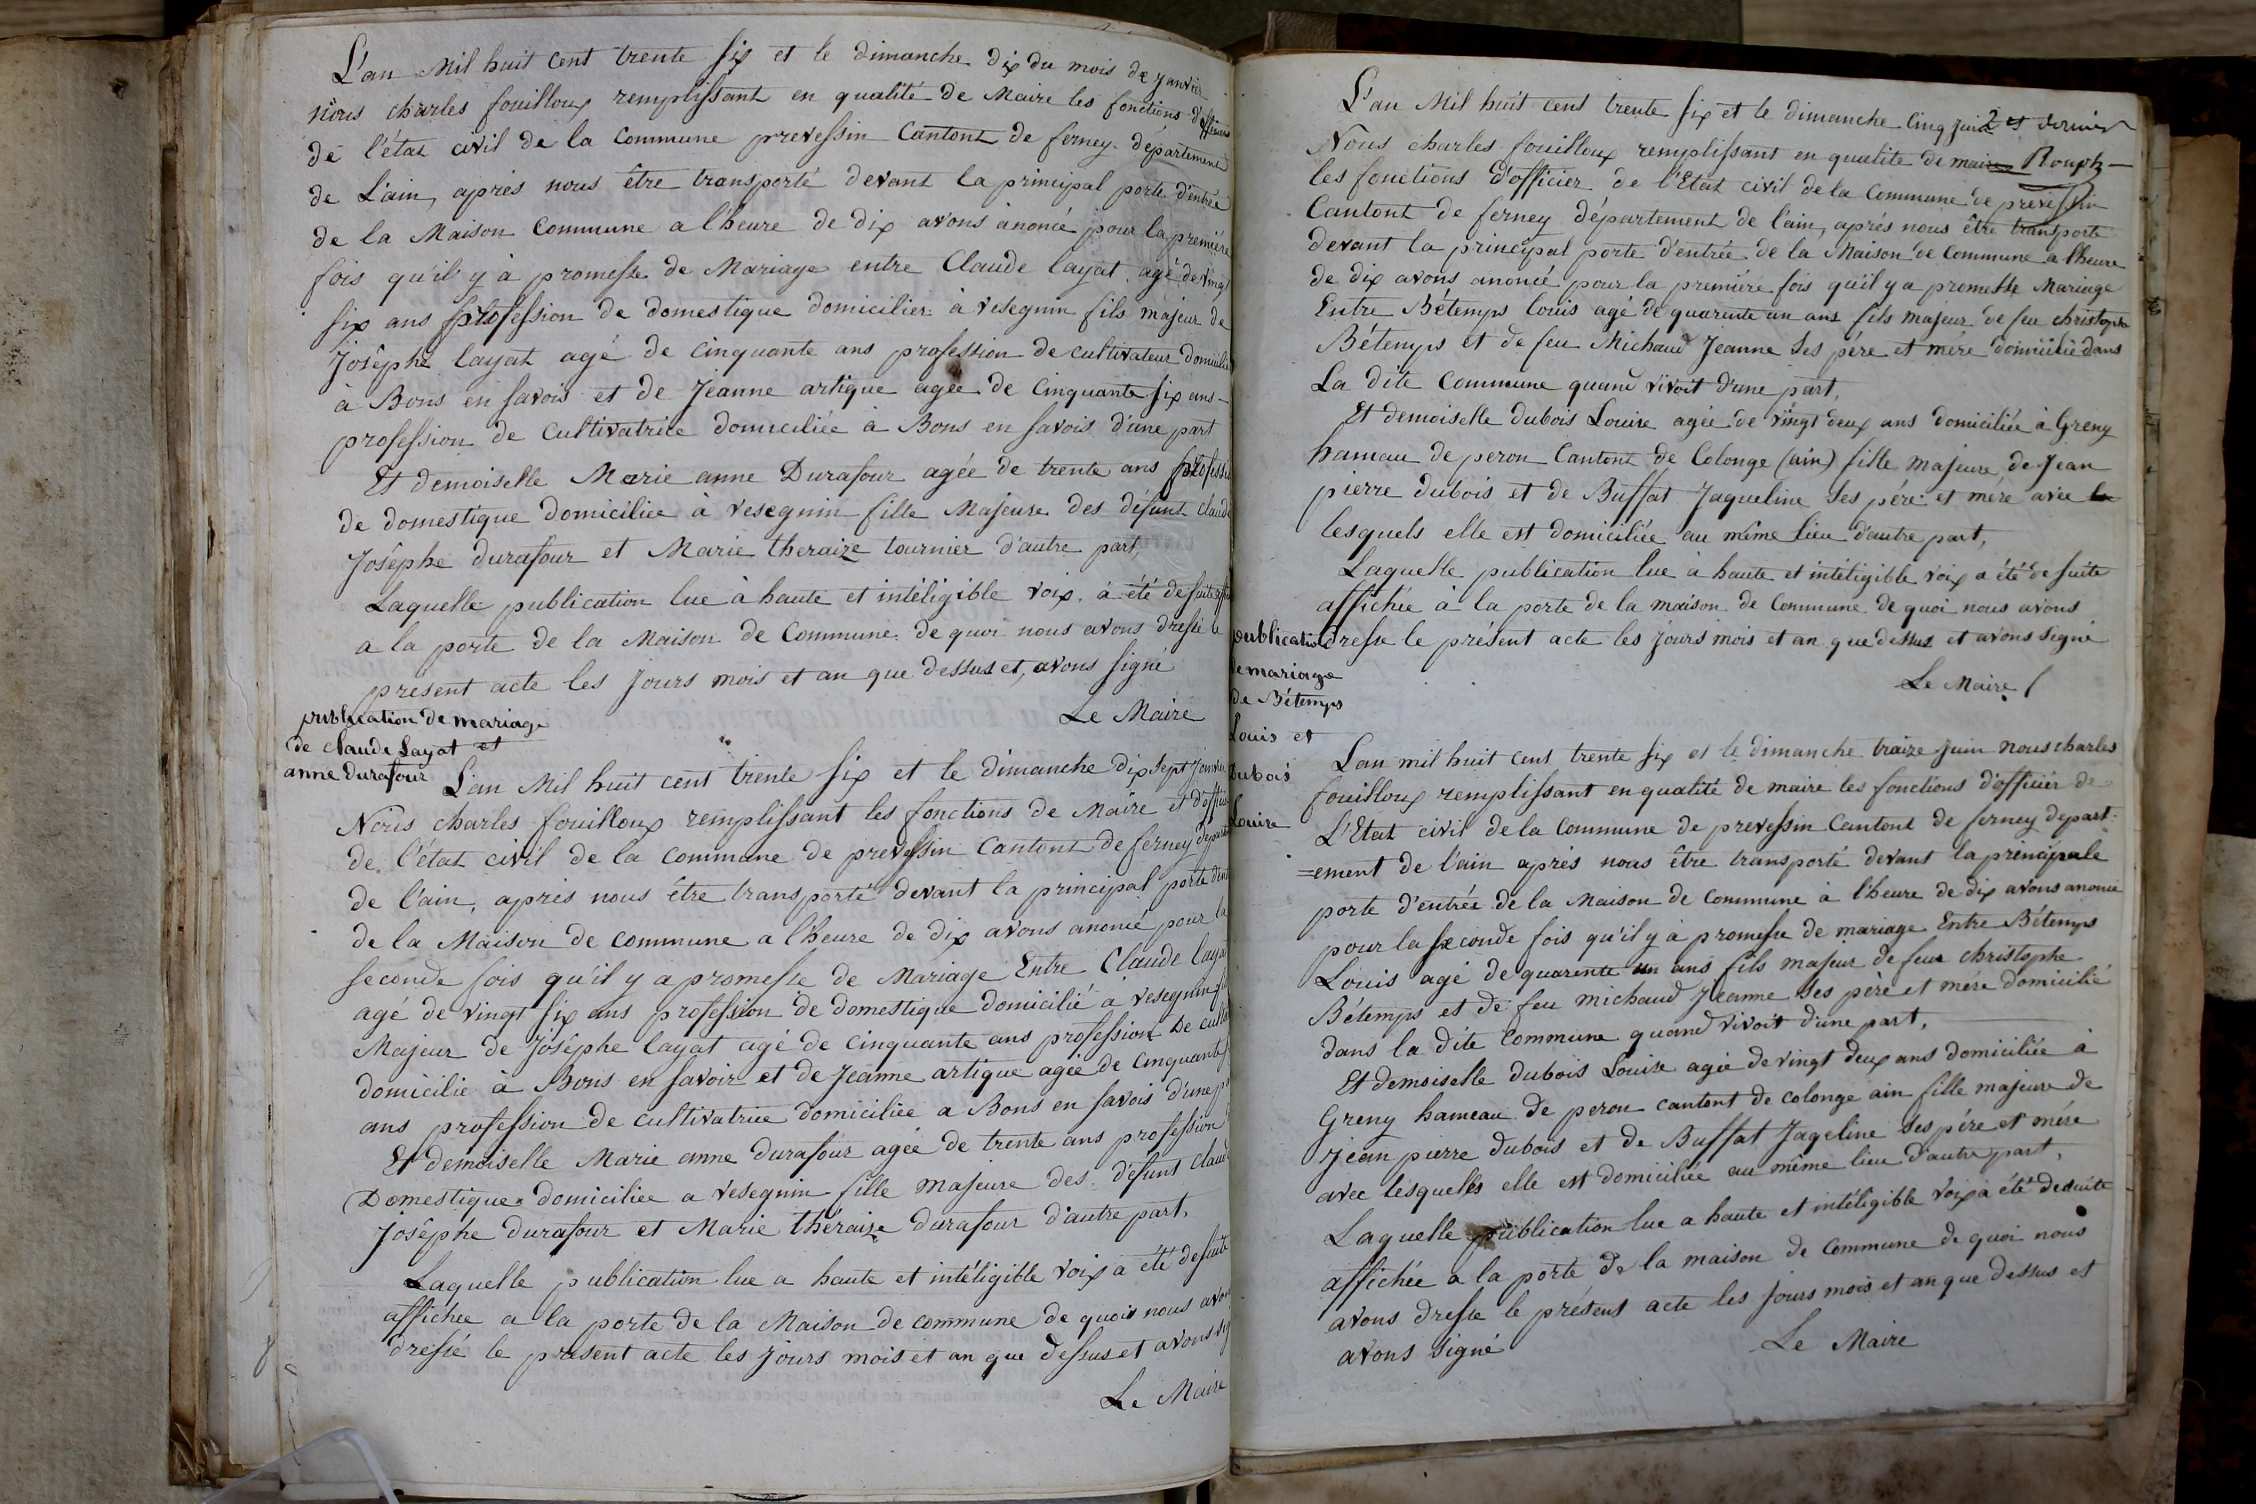 L'an Mil huit cent trente six et le dimanche dix du mois de janvier
nous charles fouilloux remplissant en qualité de Maire les fonctions d'officier
de l'état civil de la Commune prevessin Cantont de ferney département
de L'ain, aprés nous être transporté devant la principal porte d'entrée
de la Maison Commune a l'heure de dix avons anoncé pour la premiére
fois qu'il y à promesse de Mariage entre Claude layat agé de vingt
six ans profession de domestique domicilier à vesegnin fils majeur de
Josêphe layat agé de cinquante ans profession de cultivateur domicilié
à Bons en savois et de Jeanne artique agée de Cinquante six ans
profession de Cultivatrice domiciliée à Bons en savois d'une part
Et demoiselle Marie anne Durafour agée de trente ans profession
de domestique domiciliée à vesegnin fille Majeure des défunt Claude
Josêphe durafour et Marie theraize tournier d'autre part,
Laquelle publication lue à haute et intéligible voix à été de suite
a la porte de la Maison de Commune de quoi nous avons dressé le
present acte les jours mois et an que dessus et, avons signé
Le Maire
publication de mariage
de claude Layat et
anne durafour
L'an Mil huit cent trente six et le dimanche dix sept Janvier
Nous charles fouilloux remplissant les fonctions de Maire et d'officier
de l'état civil de la commune de prevessin Cantont de ferney
de l'ain, aprés nous être transporté devant la principal porte
de la Maison de commune a l'heure de dix avons anoncé pour la
seconde fois qu'il y a promesse de Mariage Entre Claude layat
agé de vingt six ans profession de domestique domicilié à vesegnin
Majeur de Josêphe layat agé de cinquante ans profession De
domicilié à Bons en savoir et de Jeanne artique agée de cinquante
ans profession de cultivatrice domiciliée a Bons en savois d'une
Et demoiselle Marie anne durafour agée de trente ans profession
Domestique domiciliée a vesegnin fille majeure des défunt Claude
Josêphe durafour et Marie théraize durafour d'autre part.
Laquelle publication lue a haute et intéligible voix a été de suite
affichée a la porte de la Maison de commune de quois nous avons
dressé le present acte les jours mois et an que dessus et avons
Le Maire
L'an Mil huit cent trente six et le dimanche cinq juin 2 et dernier
Nous charles fouilloux remplissant en qualité de maire
les fonctions d'officier de l'Etat civil de la Commune de prevessin
Cantont de ferney département de l'ain, aprés nous être transporté
devant la principal porte d'entrée de la Maison de Commune a l'heure
de dix avons anoncé pour la premiére fois qu'il y a promesse Mariage
Entre Bétemps louis agé de quarente un ans fils majeur de feu christophe
Bétemps et de feu Michaud Jeanne ses pére et mére domicilié dans
La dite Commune quand vivoit d'une part,
Et demoiselle dubois Louise agée de vingt deux ans domiciliée à Greny
hameau de peron Cantont de Colonge (ain) fille majeure de Jean
pierre dubois et de Buffat Jaqueline ses pére et mére avec
lesquels elle est domiciliée au même lieu d'autre part,
Laquelle publication lue à haute et intéligible voix a été de suite
affichée à la porte de la maison de Commune de quoi nous avons
dresse le présent acte les jours mois et an que dessus et avons signé
Le Maire
publication
de mariage
de Bétemps
Louis et
Dubois
Louise
L'an mil huit cent trente six et le dimanche traize juin nous charles
fouilloux remplissant en qualité de maire les fonctions d'officier de
L'Etat civil de la Commune de prevessin Cantont de ferney depart
=ement de l'ain aprés nous être transporté devant la principale
porte d'entrée de la Maison de Commune à l'heure de dix avons anoncé
pour la seconde fois qu'il y à promesse de mariage Entre Bétemps
Louis agé de quarente un ans fils majeur de feu christophe
Bétemps et de feu michaud Jeanne ses père et mére domicilié
dans la dite Commune quand vivoit d'une part,
Et demoiselle dubois Louise agée de vingt deux ans domiciliée à
Greny hameau de peron cantont de colonge ain fille majeure de
Jean pierre dubois et de Buffat Jageline ses pére et mére
avec lesquelles elle est domiciliée au même lieu d'autre part,
Laquelle publication lue a haute et intéligible voix à été de suite
affichée a la porte de la maison de Commune de quoi nous
avons dresse le présent acte les jours mois et an que dessus et
avons signé
Le Maire